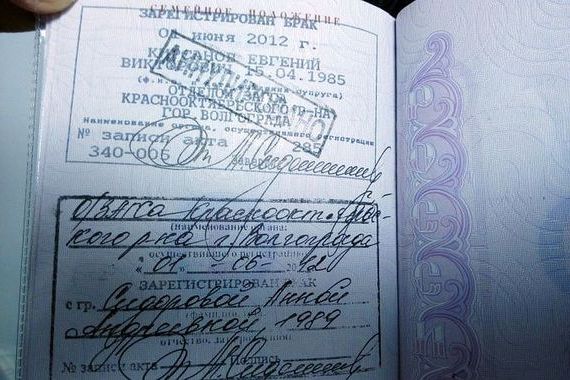 СЕМЕЙНОЕ ПОЛОЖЕНИЕ
ЗАРЕГИСТРИРОВАН БРАК
01 июня 2012 г.
ЕВГЕНИЙ
ВИКТОРОВИЧ 15.04.1985
ОТДЕЛОМ ЗАГСА
КРАСНООКТЯБРЬСКОГО Р-НА
ГОР. ВОЛГОГРАДА
наименование органа, осуществившего регистрацию
№ записи акта 285
340-006
О/ЗАГСа Краснооктябрьс-
кого р-на г. Волгограда
(наименование органа,
осуществившего регистрацию)
"01" - 06 - 2012
ЗАРЕГИСТРИРОВАН БРАК
с гр. Сидоровой Анной
Андреевной, 1989
отчество, дата рождения
№ записи акта Подпись